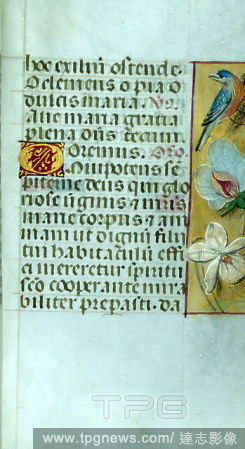 hoc exiliū ostende.
O clemens o pia o
dulcis maria.
Aue maria gratia
plena dn̄s tecum.
Oremus. Oro.
Omipotens sē
piterne deus qui glo
riose v̄ginis et mr̄is
marie corpus et ani
mam ut dignū filii
tui habitaculū effi
ci mereretur spiritu
sc̄o cooperante mira
biliter preparasti. da
TPG
www.tpgnews.com/達志影像